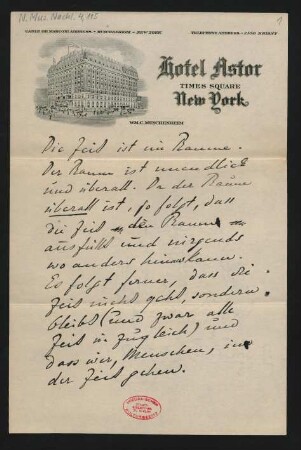 N. Mus. Nachl. 4, 115
1
Hotel Astor
TIMES SQUARE
New York
WM. C. MUSCHENHEIM
Die Zeit ist im Raume.
Der Raum ist unendlich
und überall. Da der Raum
überall ist, so folgt, dass
die Zeit den Raum
ausfüllt und nirgends
wo anders hinaus kann.
Es folgt ferner, dass die
Zeit nicht geht, sondern
bleibt (und zwar alle
Zeit in zugleich) und
dass wir, Menschen, in
der Zeit gehen.